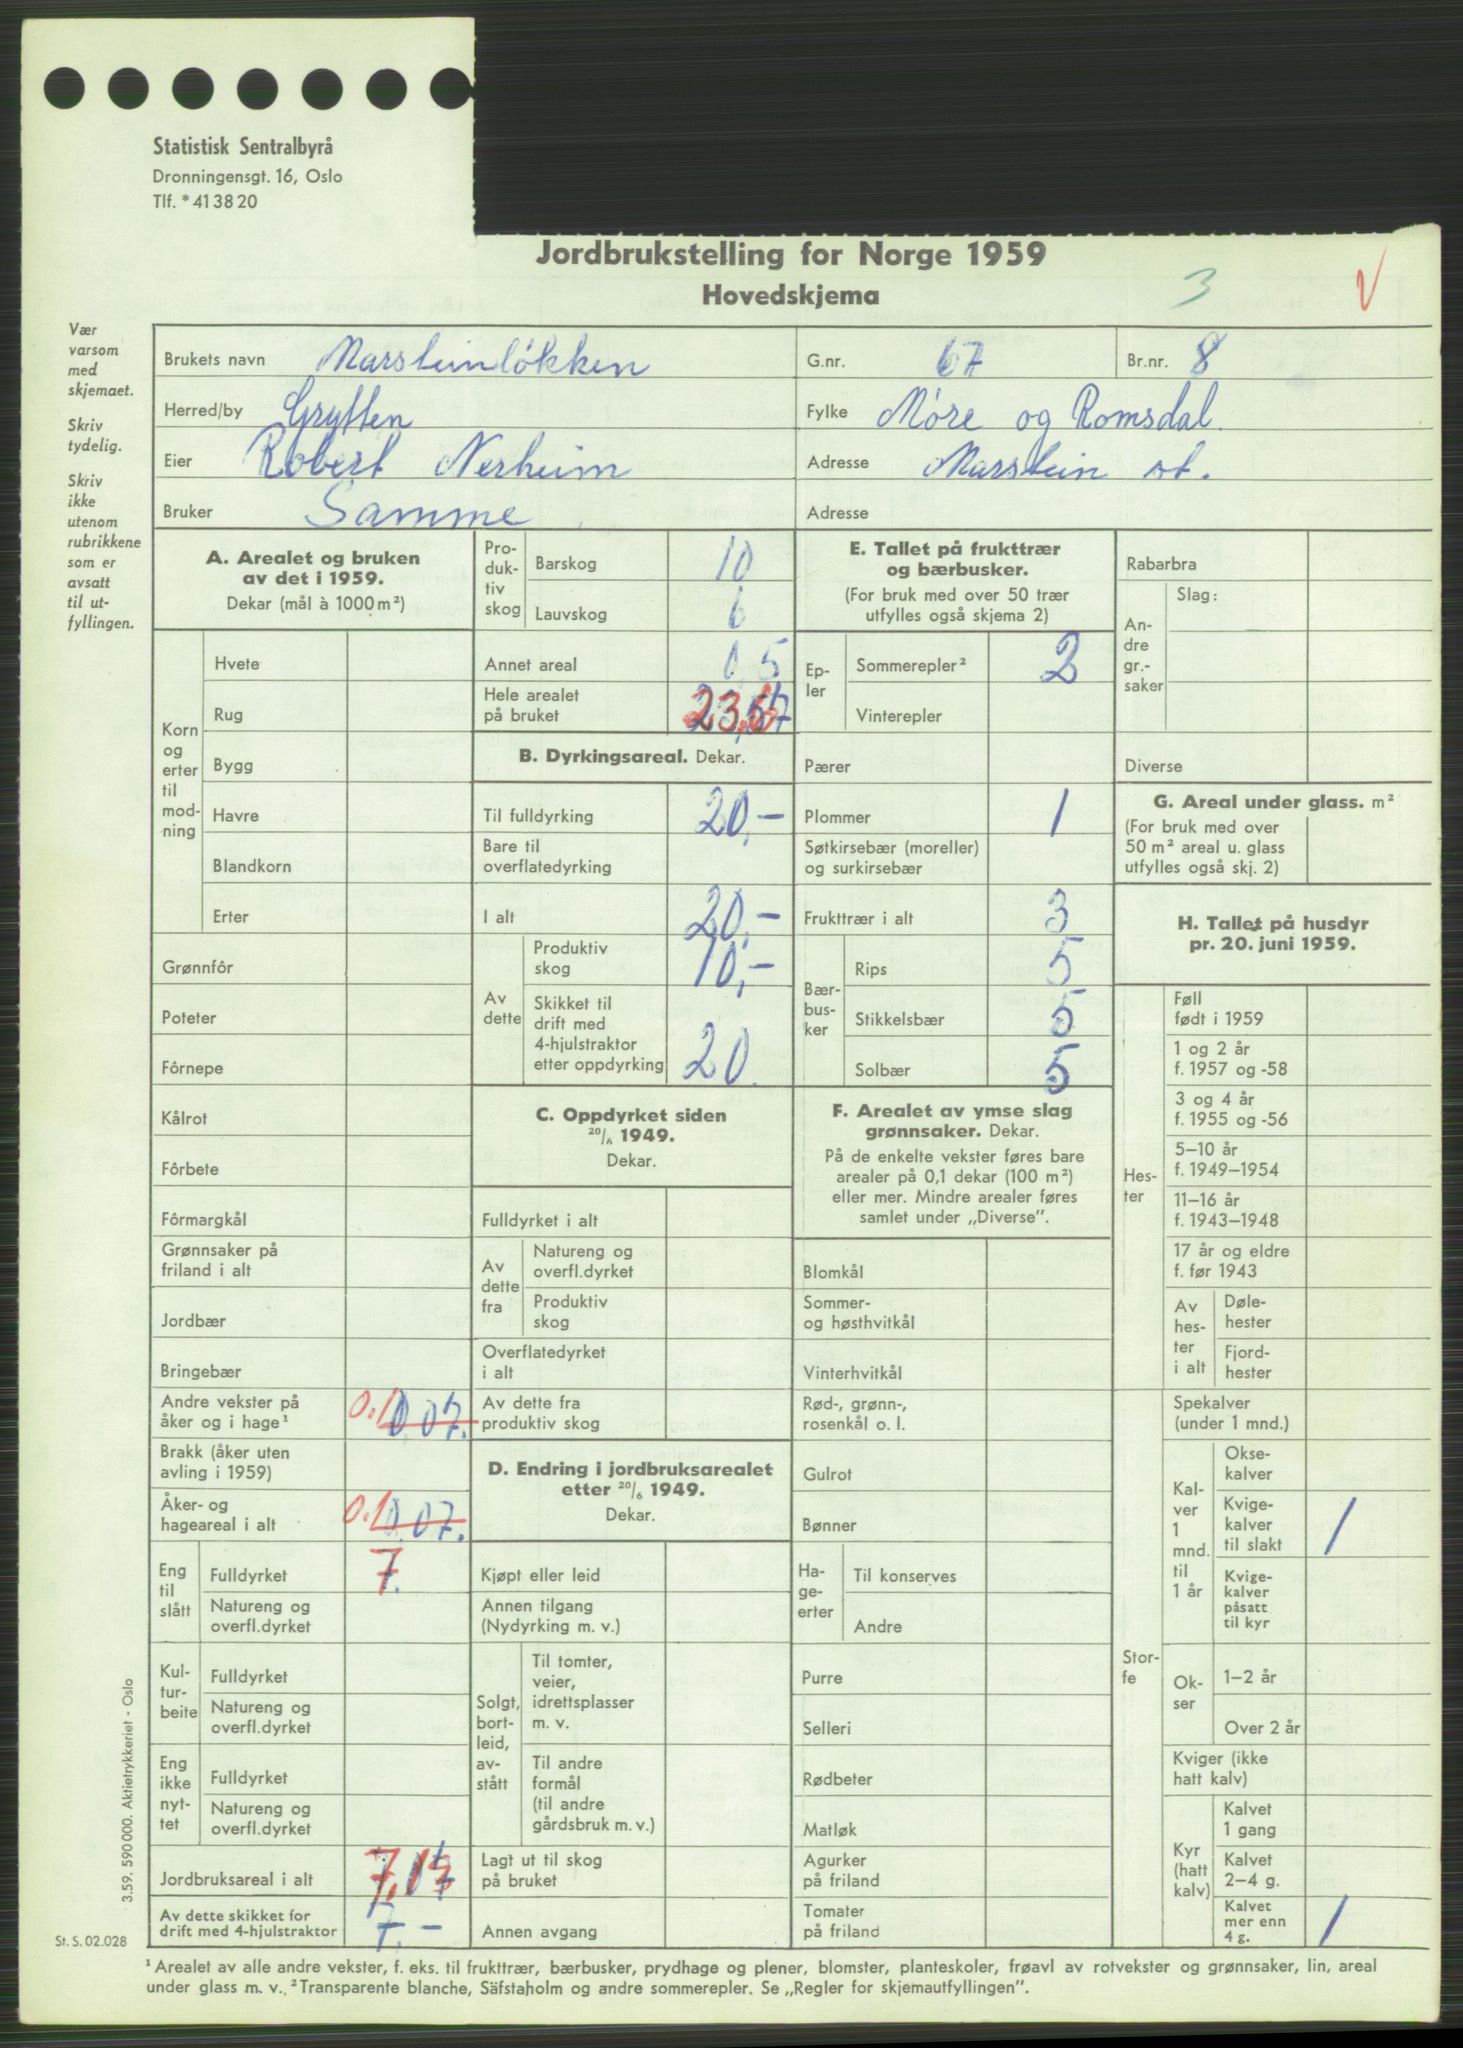 Statistisk Sentralbyrå
Dronningensgt. 16, Oslo
Tlf. * 41 38 20
Jordbrukstelling for Norge 1959
Hovedskjema
3
V
Vær
varsom
med
skjemaet.
Skriv
tydelig.
Skriv
ikke
utenom
rubrikkene
som er
avsatt
til ut-
fyllingen.
Brukets navn Marsteinløkken G.nr. 67 Br.nr. 8
Herred/by Grytten Fylke Møre og Romsdal.
Eier Robert Nerheim Adresse Marstein st.
Bruker Samme Adresse
A. Arealet og bruken
av det i 1959.
Dekar (mål à 1000 m²)
Korn
og
erter
til
mod-
ning
Hvete
Rug
Bygg
Havre
Blandkorn
Erter
Grønnfôr
Poteter
Fôrnepe
Kålrot
Fôrbete
Fôrmargkål
Grønnsaker på
friland i alt
Jordbær
Bringebær
Andre vekster på
åker og i hage¹ 0.1 0,07.
Brakk (åker uten
avling i 1959)
Åker- og
hageareal i alt 0.1 0,07.
Eng
til
slått
Fulldyrket 7.
Natureng og
overfl.dyrket
Kul-
tur-
beite
Fulldyrket
Natureng og
overfl.dyrket
Eng
ikke
nyt-
tet
Fulldyrket
Natureng og
overfl.dyrket
Jordbruksareal i alt 7,1
Av dette skikket for
drift med 4-hjulstraktor 7,-
Pro-
duk-
tiv
skog
Barskog 10
Lauvskog 6
Annet areal 0,5
Hele arealet
på bruket 23,6
B. Dyrkingsareal. Dekar.
Til fulldyrking 20,-
Bare til
overflatedyrking
I alt 20,-
Av
dette
Produktiv
skog 10,-
Skikket til
drift med
4-hjulstraktor
etter oppdyrking 20
C. Oppdyrket siden
20/6 1949.
Dekar.
Fulldyrket i alt
Av
dette
fra
Natureng og
overfl.dyrket
Produktiv
skog
Overflatedyrket
i alt
Av dette fra
produktiv skog
D. Endring i jordbruksarealet
etter 20/6 1949.
Dekar.
Kjøpt eller leid
Annen tilgang
(Nydyrking m. v.)
Solgt,
bort-
leid,
av-
stått
Til tomter,
veier,
idrettsplasser
m. v.
Til andre
formål
(til andre
gårdsbruk m. v.)
Lagt ut til skog
på bruket
Annen avgang
E. Tallet på frukttrær
og bærbusker.
(For bruk med over 50 trær
utfylles også skjema 2)
Ep-
ler
Sommerepler² 2
Vinterepler
Pærer
Plommer 1
Søtkirsebær (moreller)
og surkirsebær
Frukttrær i alt 3
Bær-
bus-
ker
Rips 5
Stikkelsbær 5
Solbær 5
F. Arealet av ymse slag
grønnsaker. Dekar.
På de enkelte vekster føres bare
arealer på 0,1 dekar (100 m²)
eller mer. Mindre arealer føres
samlet under „Diverse”.
Blomkål
Sommer-
og høsthvitkål
Vinterhvitkål
Rød-, grønn-,
rosenkål o. l.
Gulrot
Bønner
Ha-
ge-
erter
Til konserves
Andre
Purre
Selleri
Rødbeter
Matløk
Agurker
på friland
Tomater
på friland
Rabarbra
An-
dre
gr.-
saker
Slag:
Diverse
G. Areal under glass. m²
(For bruk med over
50 m² areal u. glass
utfylles også skj. 2)
H. Tallet på husdyr
pr. 20. juni 1959.
Hes-
ter
Føll
født i 1959
1 og 2 år
f. 1957 og -58
3 og 4 år
f. 1955 og -56
5–10 år
f. 1949–1954
11–16 år
f. 1943–1948
17 år og eldre
f. før 1943
Av
hes-
ter
i alt
Døle-
hester
Fjord-
hester
Stor-
fe
Spekalver
(under 1 mnd.)
Kal-
ver
1
mnd.
til
1 år
Okse-
kalver
Kvige-
kalver
til slakt 1
Kvige-
kalver
påsatt
til kyr
Ok-
ser
1–2 år
Over 2 år
Kviger (ikke
hatt kalv)
Kyr
(hatt
kalv)
Kalvet
1 gang
Kalvet
2–4 g.
Kalvet
mer enn
4 g. 1
3.59. 590 000. Aktietrykkeriet - Oslo
St. S. 02.028
¹ Arealet av alle andre vekster, f. eks. til frukttrær, bærbusker, prydhage og plener, blomster, planteskoler, frøavl av rotvekster og grønnsaker, lin, areal
under glass m. v. ² Transparente blanche, Säfstaholm og andre sommerepler. Se „Regler for skjemautfyllingen”.